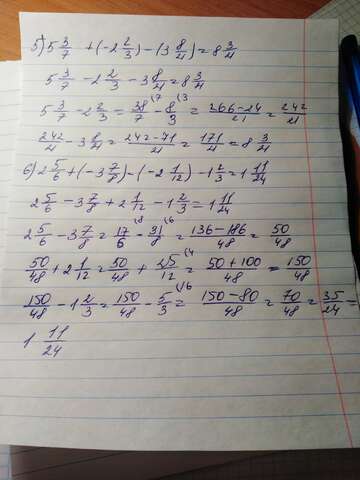 5) 5 3/7 + (-2 2/3) - (3 8/21) = 8 3/21
5 3/7 - 2 2/3 - 3 8/21 = 8 3/21
5 3/7 - 2 2/3 = 38/7 (3 - 8/3 (7 = 266-24/21 = 242/21
242/21 - 3 8/21 = 242-71/21 = 171/21 = 8 3/21
6) 2 5/6 + (-3 7/8) - (-2 1/12) - 1 2/3 = 1 11/24
2 5/6 - 3 7/8 + 2 1/12 - 1 2/3 = 1 11/24
2 5/6 - 3 7/8 = 17/6 (8 - 31/8 (6 = 136-186/48 = 50/48
50/48 + 2 1/12 = 50/48 + 25/12 (4 = 50+100/48 = 150/48
150/48 - 1 2/3 = 150/48 - 5/3 (16 = 150-80/48 = 70/48 = 35/24 =
1 11/24